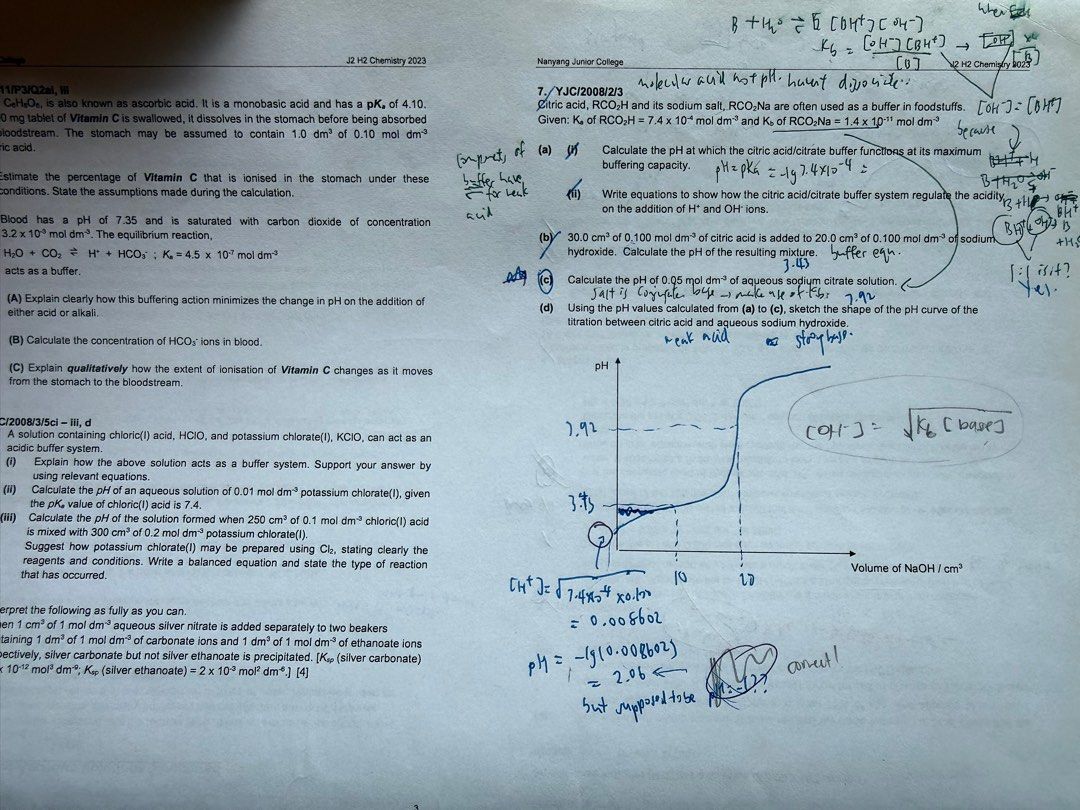 J2 H2 Chemistry 2023
11/P3/Q2ai, iii
C₆H₈O₆, is also known as ascorbic acid. It is a monobasic acid and has a pKₐ of 4.10.
0 mg tablet of Vitamin C is swallowed, it dissolves in the stomach before being absorbed
bloodstream. The stomach may be assumed to contain 1.0 dm³ of 0.10 mol dm⁻³
ric acid.
Estimate the percentage of Vitamin C that is ionised in the stomach under these
conditions. State the assumptions made during the calculation.
Blood has a pH of 7.35 and is saturated with carbon dioxide of concentration
3.2 x 10⁻³ mol dm⁻³. The equilibrium reaction,
H₂O + CO₂ ⇌ H⁺ + HCO₃⁻ ; Kₐ = 4.5 x 10⁻⁷ mol dm⁻³
acts as a buffer.
(A) Explain clearly how this buffering action minimizes the change in pH on the addition of
either acid or alkali.
(B) Calculate the concentration of HCO₃⁻ ions in blood.
(C) Explain qualitatively how the extent of ionisation of Vitamin C changes as it moves
from the stomach to the bloodstream.
C/2008/3/5ci – iii, d
A solution containing chloric(I) acid, HClO, and potassium chlorate(I), KClO, can act as an
acidic buffer system.
(i) Explain how the above solution acts as a buffer system. Support your answer by
using relevant equations.
(ii) Calculate the pH of an aqueous solution of 0.01 mol dm⁻³ potassium chlorate(I), given
the pKₐ value of chloric(I) acid is 7.4.
(iii) Calculate the pH of the solution formed when 250 cm³ of 0.1 mol dm⁻³ chloric(I) acid
is mixed with 300 cm³ of 0.2 mol dm⁻³ potassium chlorate(I).
Suggest how potassium chlorate(I) may be prepared using Cl₂, stating clearly the
reagents and conditions. Write a balanced equation and state the type of reaction
that has occurred.
erpret the following as fully as you can.
en 1 cm³ of 1 mol dm⁻³ aqueous silver nitrate is added separately to two beakers
taining 1 dm³ of 1 mol dm⁻³ of carbonate ions and 1 dm³ of 1 mol dm⁻³ of ethanoate ions
pectively, silver carbonate but not silver ethanoate is precipitated. [Kₛₚ (silver carbonate)
x 10⁻¹² mol³ dm⁻⁹; Kₛₚ (silver ethanoate) = 2 x 10⁻³ mol² dm⁻⁶.] [4]
3
B + H₂O ⇌ [BH⁺][OH⁻]
Kb = [OH⁻][BH⁺] → [OH⁻]
[B]
Nanyang Junior College
J2 H2 Chemistry 2023
molecular acid not pH. havent dissociate..
7. YJC/2008/2/3
Citric acid, RCO₂H and its sodium salt, RCO₂Na are often used as a buffer in foodstuffs.
Given: Kₐ of RCO₂H = 7.4 x 10⁻⁴ mol dm⁻³ and K_b of RCO₂Na = 1.4 x 10⁻¹¹ mol dm⁻³
[OH⁻] = [BH⁺]
because
(a) (i) Calculate the pH at which the citric acid/citrate buffer functions at its maximum
buffering capacity. pH = pKa = -lg 7.4x10⁻⁴ =
components of
buffer have
⇌ for weak
acid
(ii) Write equations to show how the citric acid/citrate buffer system regulate the acidity
on the addition of H⁺ and OH⁻ ions.
B + H₂O ⇌
(b) 30.0 cm³ of 0.100 mol dm⁻³ of citric acid is added to 20.0 cm³ of 0.100 mol dm⁻³ of sodium
hydroxide. Calculate the pH of the resulting mixture. buffer eqn.
3.43
is it?
yes.
(c) Calculate the pH of 0.05 mol dm⁻³ of aqueous sodium citrate solution.
salt is conjugate base → make use of Kb. 7.92
(d) Using the pH values calculated from (a) to (c), sketch the shape of the pH curve of the
titration between citric acid and aqueous sodium hydroxide.
weak acid strong base.
pH
7.92
[OH⁻] = √Kb [base]
3.43
Volume of NaOH / cm³
10 20
[H⁺] = √7.4x10⁻⁴ x0.100
= 0.008602
pH = -lg(0.008602)
= 2.06 ←
correct!
but supposed to be